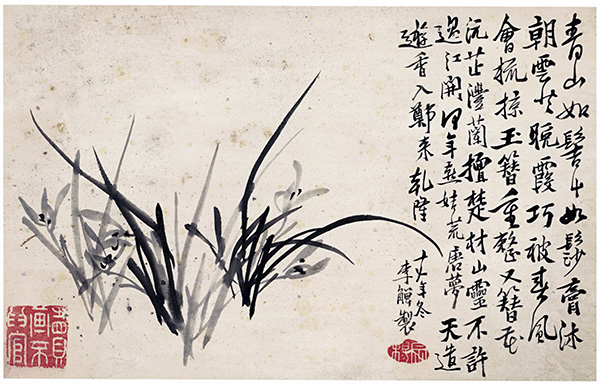 青山如髻草如膏沐
朝雲共晚霞巧被春風
會梳掠玉簪重整又簪花
沅芷澧蘭擅楚材山靈不許
過江開何年燕姞荒唐夢天
香入鄭來乾隆
年冬
李鱓製